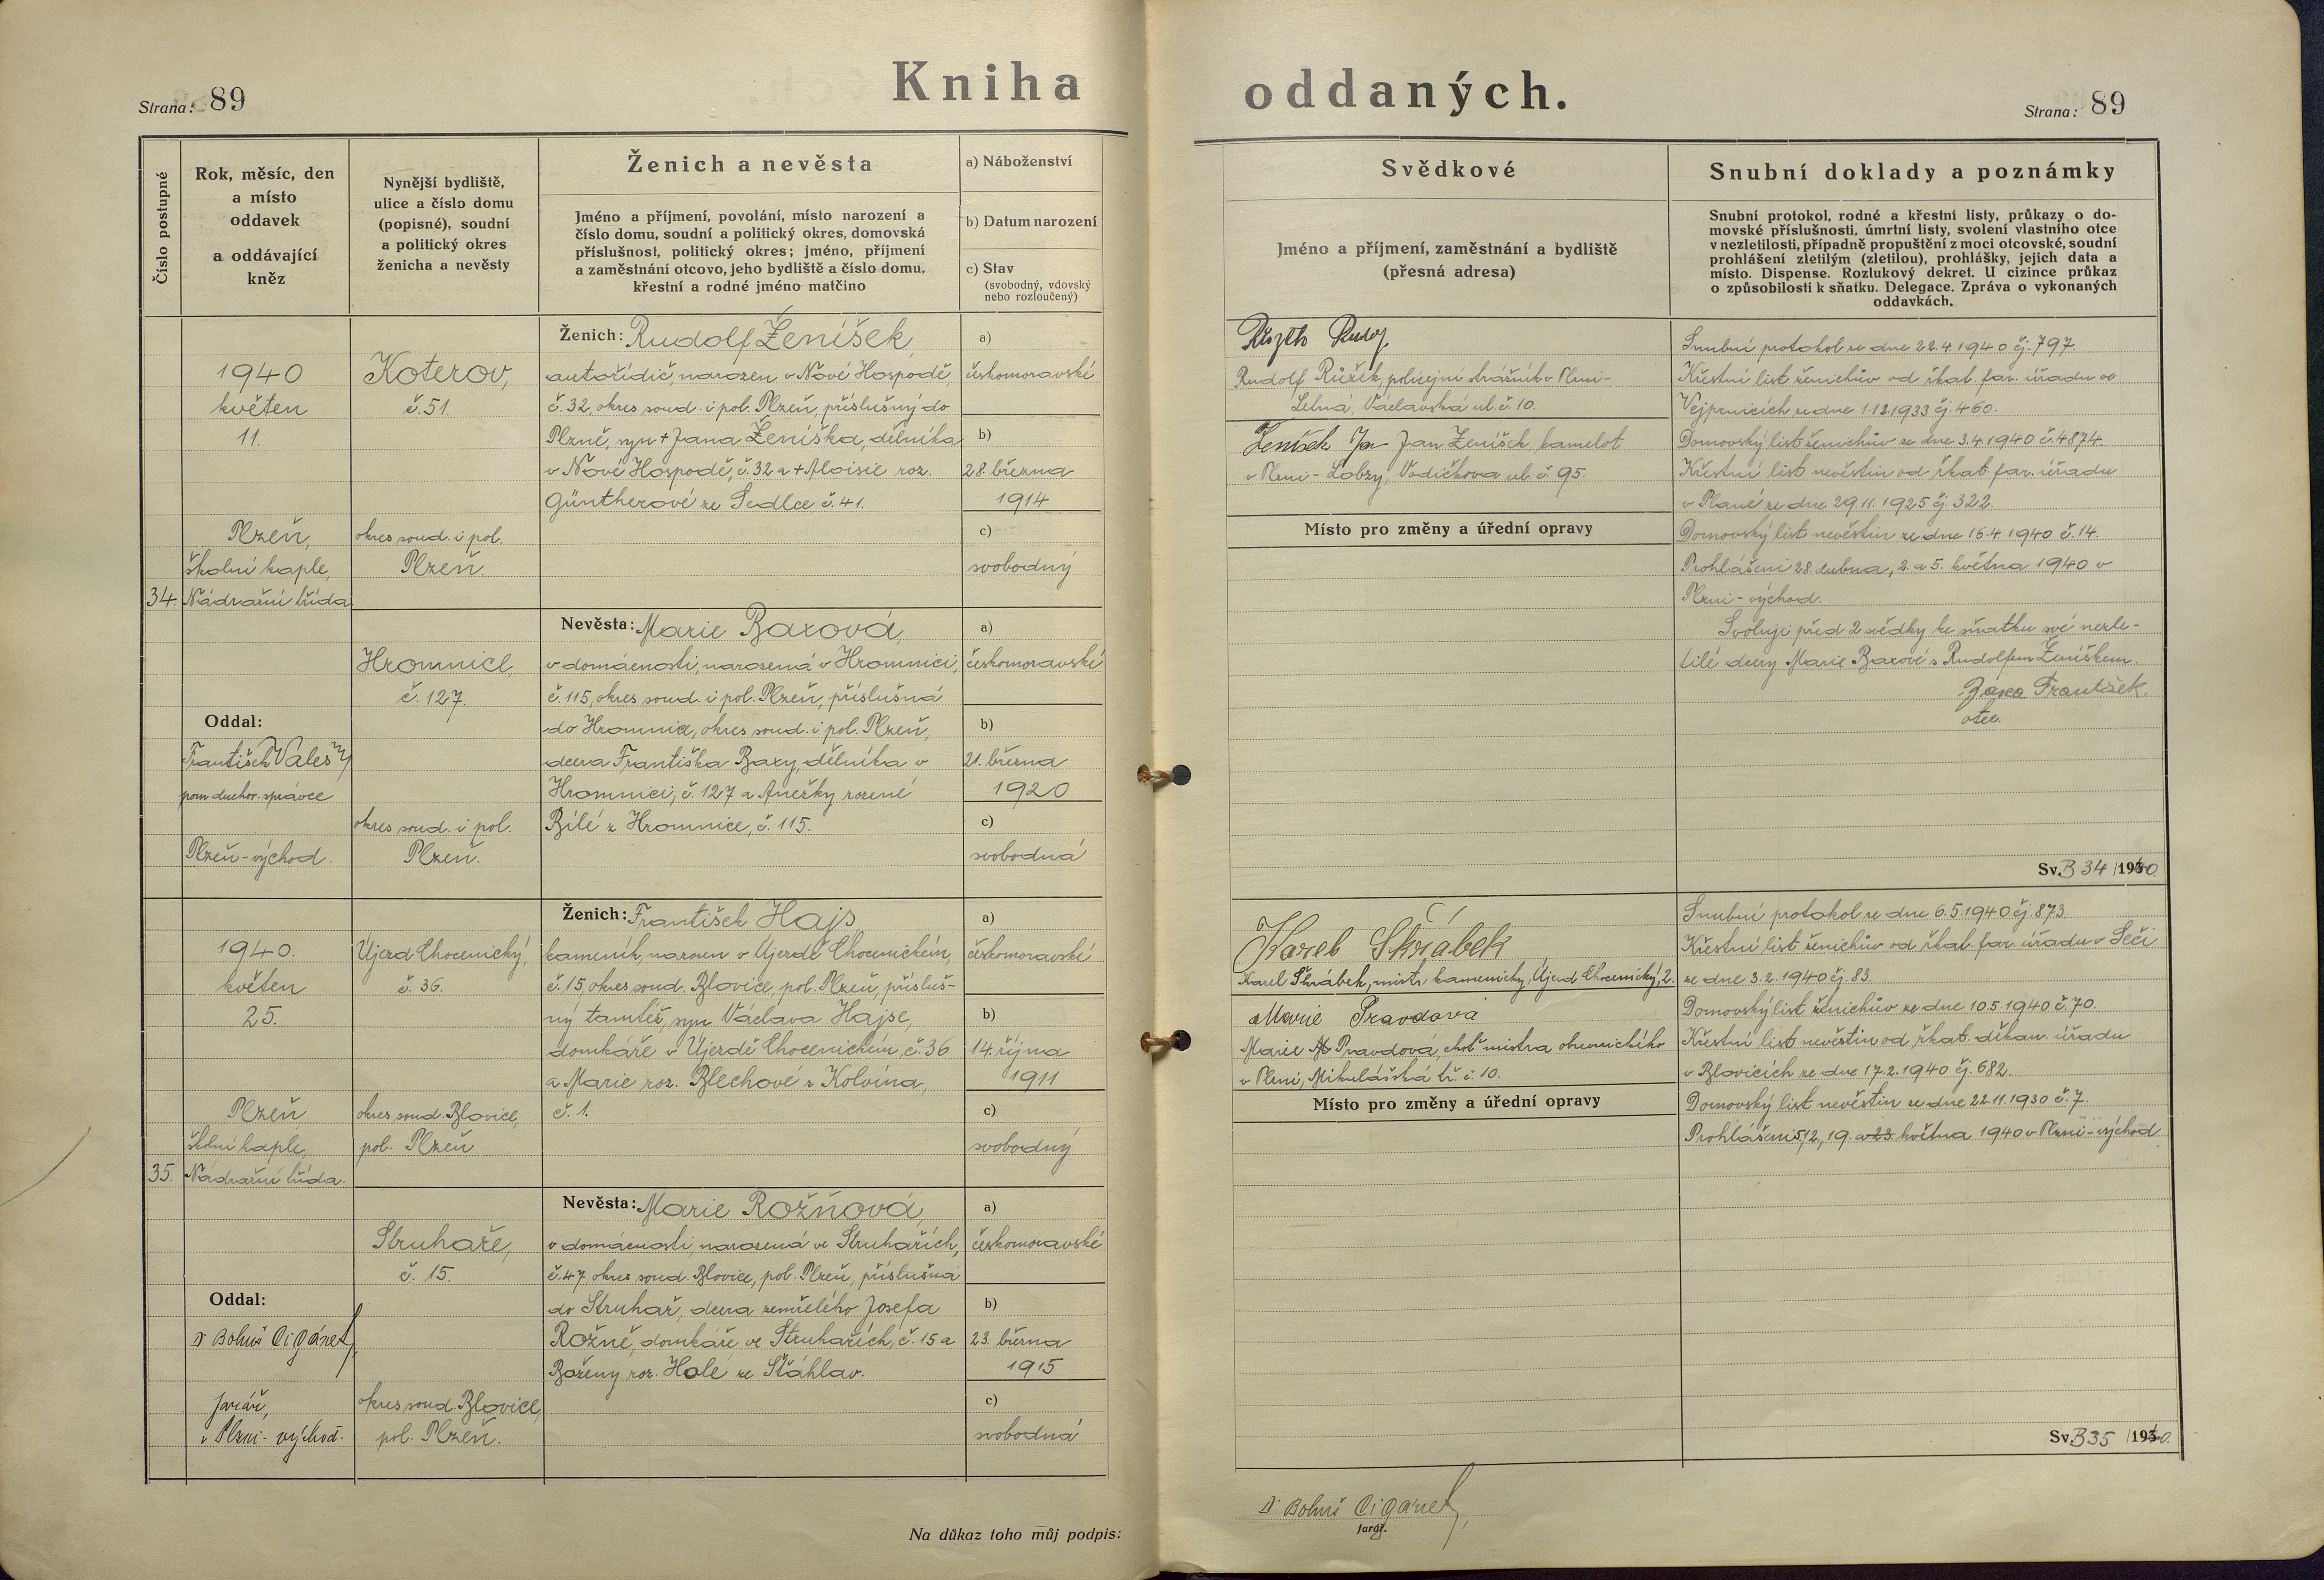 Kniha oddaných.
Strana: 89
Strana: 89
Číslo postupné
Rok, měsíc, den
a místo
oddavek
a oddávající
kněz
Nynější bydliště,
ulice a číslo domu
(popisné), soudní
a politický okres
ženicha a nevěsty
Ženich a nevěsta
Jméno a příjmení, povolání, místo narození a
číslo domu, soudní a politický okres, domovská
příslušnost, politický okres; jméno, příjmení
a zaměstnání otcovo, jeho bydliště a číslo domu,
křestní a rodné jméno matčino
a) Náboženství
b) Datum narození
c) Stav
(svobodný, vdovský
nebo rozloučený)
Svědkové
Jméno a příjmení, zaměstnání a bydliště
(přesná adresa)
Snubní doklady a poznámky
Snubní protokol, rodné a křestní listy, průkazy o do-
movské příslušnosti, úmrtní listy, svolení vlastního otce
v nezletilosti, případně propuštění z moci otcovské, soudní
prohlášení zletilým (zletilou), prohlášky, jejich data a
místo. Dispense. Rozlukový dekret. U cizince průkaz
o způsobilosti k sňatku. Delegace. Zpráva o vykonaných
oddavkách.
34.
1940
květen
11.
Plzeň,
školní kaple,
Nádražní třída
Oddal:
František Valeš
pom. duchov. správce
Plzeň-východ.
Koterov,
č. 51.
okres soud. i pol.
Plzeň.
Hromnice,
č. 127.
okres soud. i pol.
Plzeň.
Ženich: Rudolf Ženíšek,
autořidič, narozen v Nové Hospodě,
č. 32, okres soud. i pol. Plzeň, příslušný do
Plzně, syn + Jana Ženíška, dělníka
v Nové Hospodě, č. 32 a + Aloisie roz.
Güntherové ze Sedlce, č. 41.
a)
českomoravské
b)
28. března
1914
c)
svobodný
Nevěsta: Marie Baxová,
v domácnosti, narozená v Hromnici,
č. 115, okres soud. i pol. Plzeň, příslušná
do Hromnice, okres soud. i pol. Plzeň,
dcera Františka Baxy, dělníka v
Hromnici, č. 127 a Anežky rozené
Bílé z Hromnice, č. 115.
a)
českomoravské
b)
21. března
1920
c)
svobodná
Rudolf Růžek, policejní strážník v Plzni-
Letná, Václavská ul. č. 10.
Ženíšek Jan Jan Ženíšek, kamelot
v Plzni-Lobzy, Vodičkova ul. č. 95.
Místo pro změny a úřední opravy
Snubní protokol ze dne 22.4.1940 čj. 797.
Křestní list ženichův od řkat. far. úřadu ve
Vejprnicích ze dne 1.12.1933 čj. 460.
Domovský list ženichův ze dne 3.4.1940 č. 4874.
Křestní list nevěstin od řkat. far. úřadu
v Plané ze dne 29.11.1925 čj. 322.
Domovský list nevěstin ze dne 16.4.1940 č. 14.
Prohlášeni 28. dubna, 2. a 5. května 1940 v
Plzni-východ.
Svoluji před 2 svědky ke sňatku své nezle-
tilé dcery Marie Baxové s Rudolfem Ženíškem.
Baxa František.
otec.
Sv. B 34 /1940.
35.
1940.
květen
25.
Plzeň,
školní kaple,
Nádražní třída.
Oddal:
Dr Bohuš Cigánek,
farář,
v Plzni-východ.
Újezd Chocenický,
č. 36.
okres soud. Blovice,
pol. Plzeň
Struhaře,
č. 15.
okres soud. Blovice,
pol. Plzeň.
Ženich: František Hajs
kameník, narozen v Újezdě Chocenickém,
č. 15, okres soud. Blovice, pol. Plzeň, přísluš-
ný tamtéž, syn Václava Hajse,
domkáře v Újezdě Chocenickém, č. 36
a Marie roz. Blechové z Kolvína,
č. 1.
a)
českomoravské
b)
14. října
1911
c)
svobodný
Nevěsta: Marie Rožňová,
v domácnosti, narozená ve Struhařích,
č. 47, okres soud. Blovice, pol. Plzeň, příslušná
do Struhař, dcera zemřelého Josefa
Rožně, domkáře ve Struhařích, č. 15 a
Boženy roz. Holé ze Šťáhlav.
a)
českomoravské
b)
23. března
1915
c)
svobodná
Karel Škrábek
Karel Škrábek, mistr kamenický, Újezd Chocenický, 2.
Marie Pravdová
Marie Pravdová, choť mistra obuvnického
v Plzni, Mikulášská tř. č. 10.
Místo pro změny a úřední opravy
Snubní protokol ze dne 6.5.1940 čj. 873.
Křestní list ženichův od řkat. far. úřadu v Seči
ze dne 3.2.1940 čj. 83.
Domovský list ženichův ze dne 10.5.1940 č. 70.
Křestní list nevěstin od řkat. děkan. úřadu
v Blovicích ze dne 17.2.1940 čj. 682.
Domovský list nevěstin ze dne 22.11.1930 č. 7.
Prohlášeni 12., 19. a 23. května 1940 v Plzni-východ.
Sv. B 35 /1940.
Na důkaz toho můj podpis:
Dr Bohuš Cigánek,
farář.